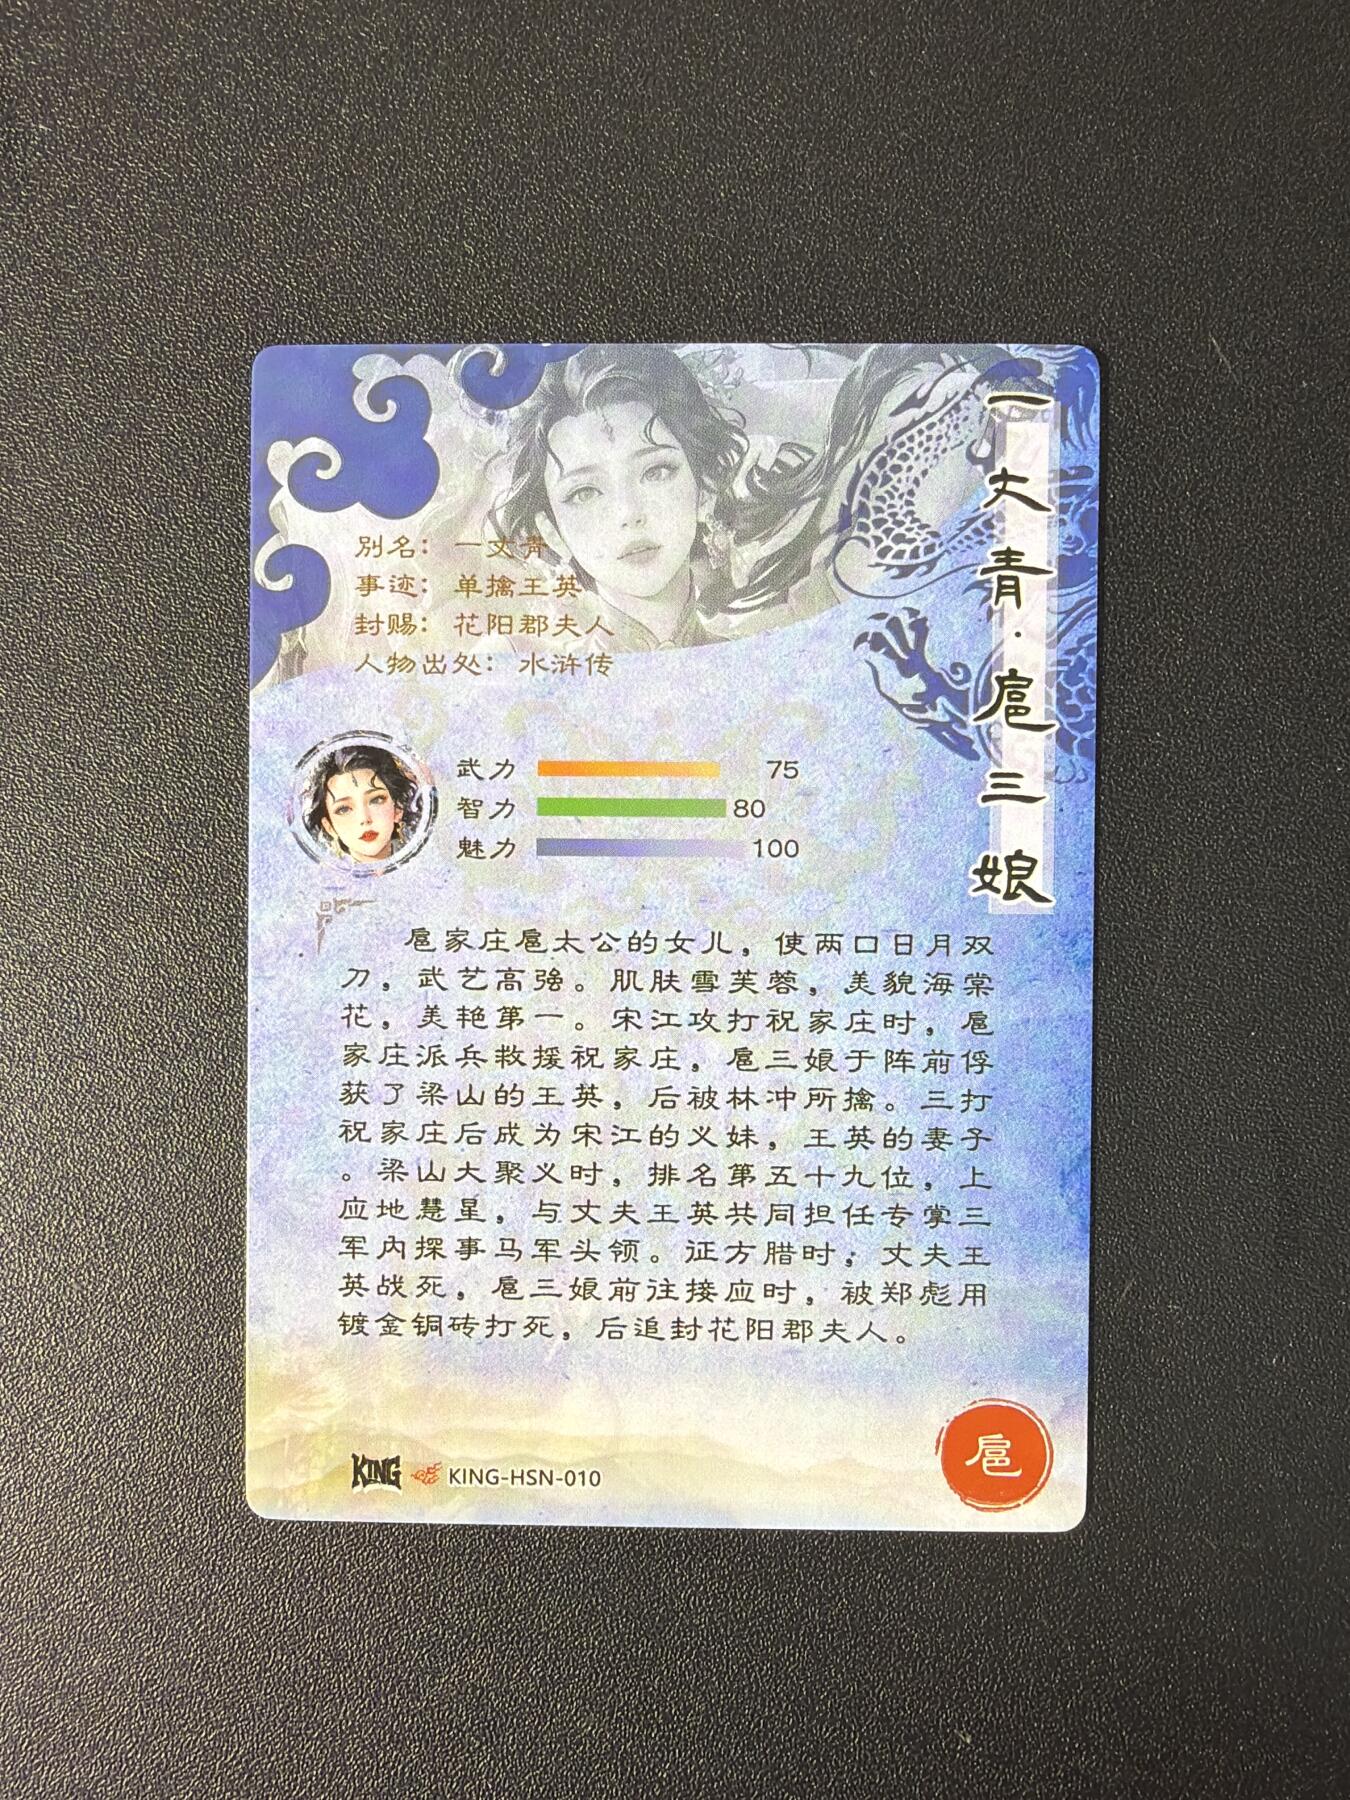 一丈青·扈三娘
别名：一丈青
事迹：单擒王英
封赐：花阳郡夫人
人物出处：水浒传
武力 75
智力 80
魅力 100
扈家庄扈太公的女儿，使两口日月双
刀，武艺高强。肌肤雪芙蓉，美貌海棠
花，美艳第一。宋江攻打祝家庄时，扈
家庄派兵救援祝家庄，扈三娘于阵前俘
获了梁山的王英，后被林冲所擒。三打
祝家庄后成为宋江的义妹，王英的妻子
。梁山大聚义时，排名第五十九位，上
应地慧星，与丈夫王英共同担任专掌三
军内探事马军头领。证方腊时；丈夫王
英战死，扈三娘前往接应时，被郑彪用
镀金铜砖打死，后追封花阳郡夫人。
KING KING-HSN-010
扈